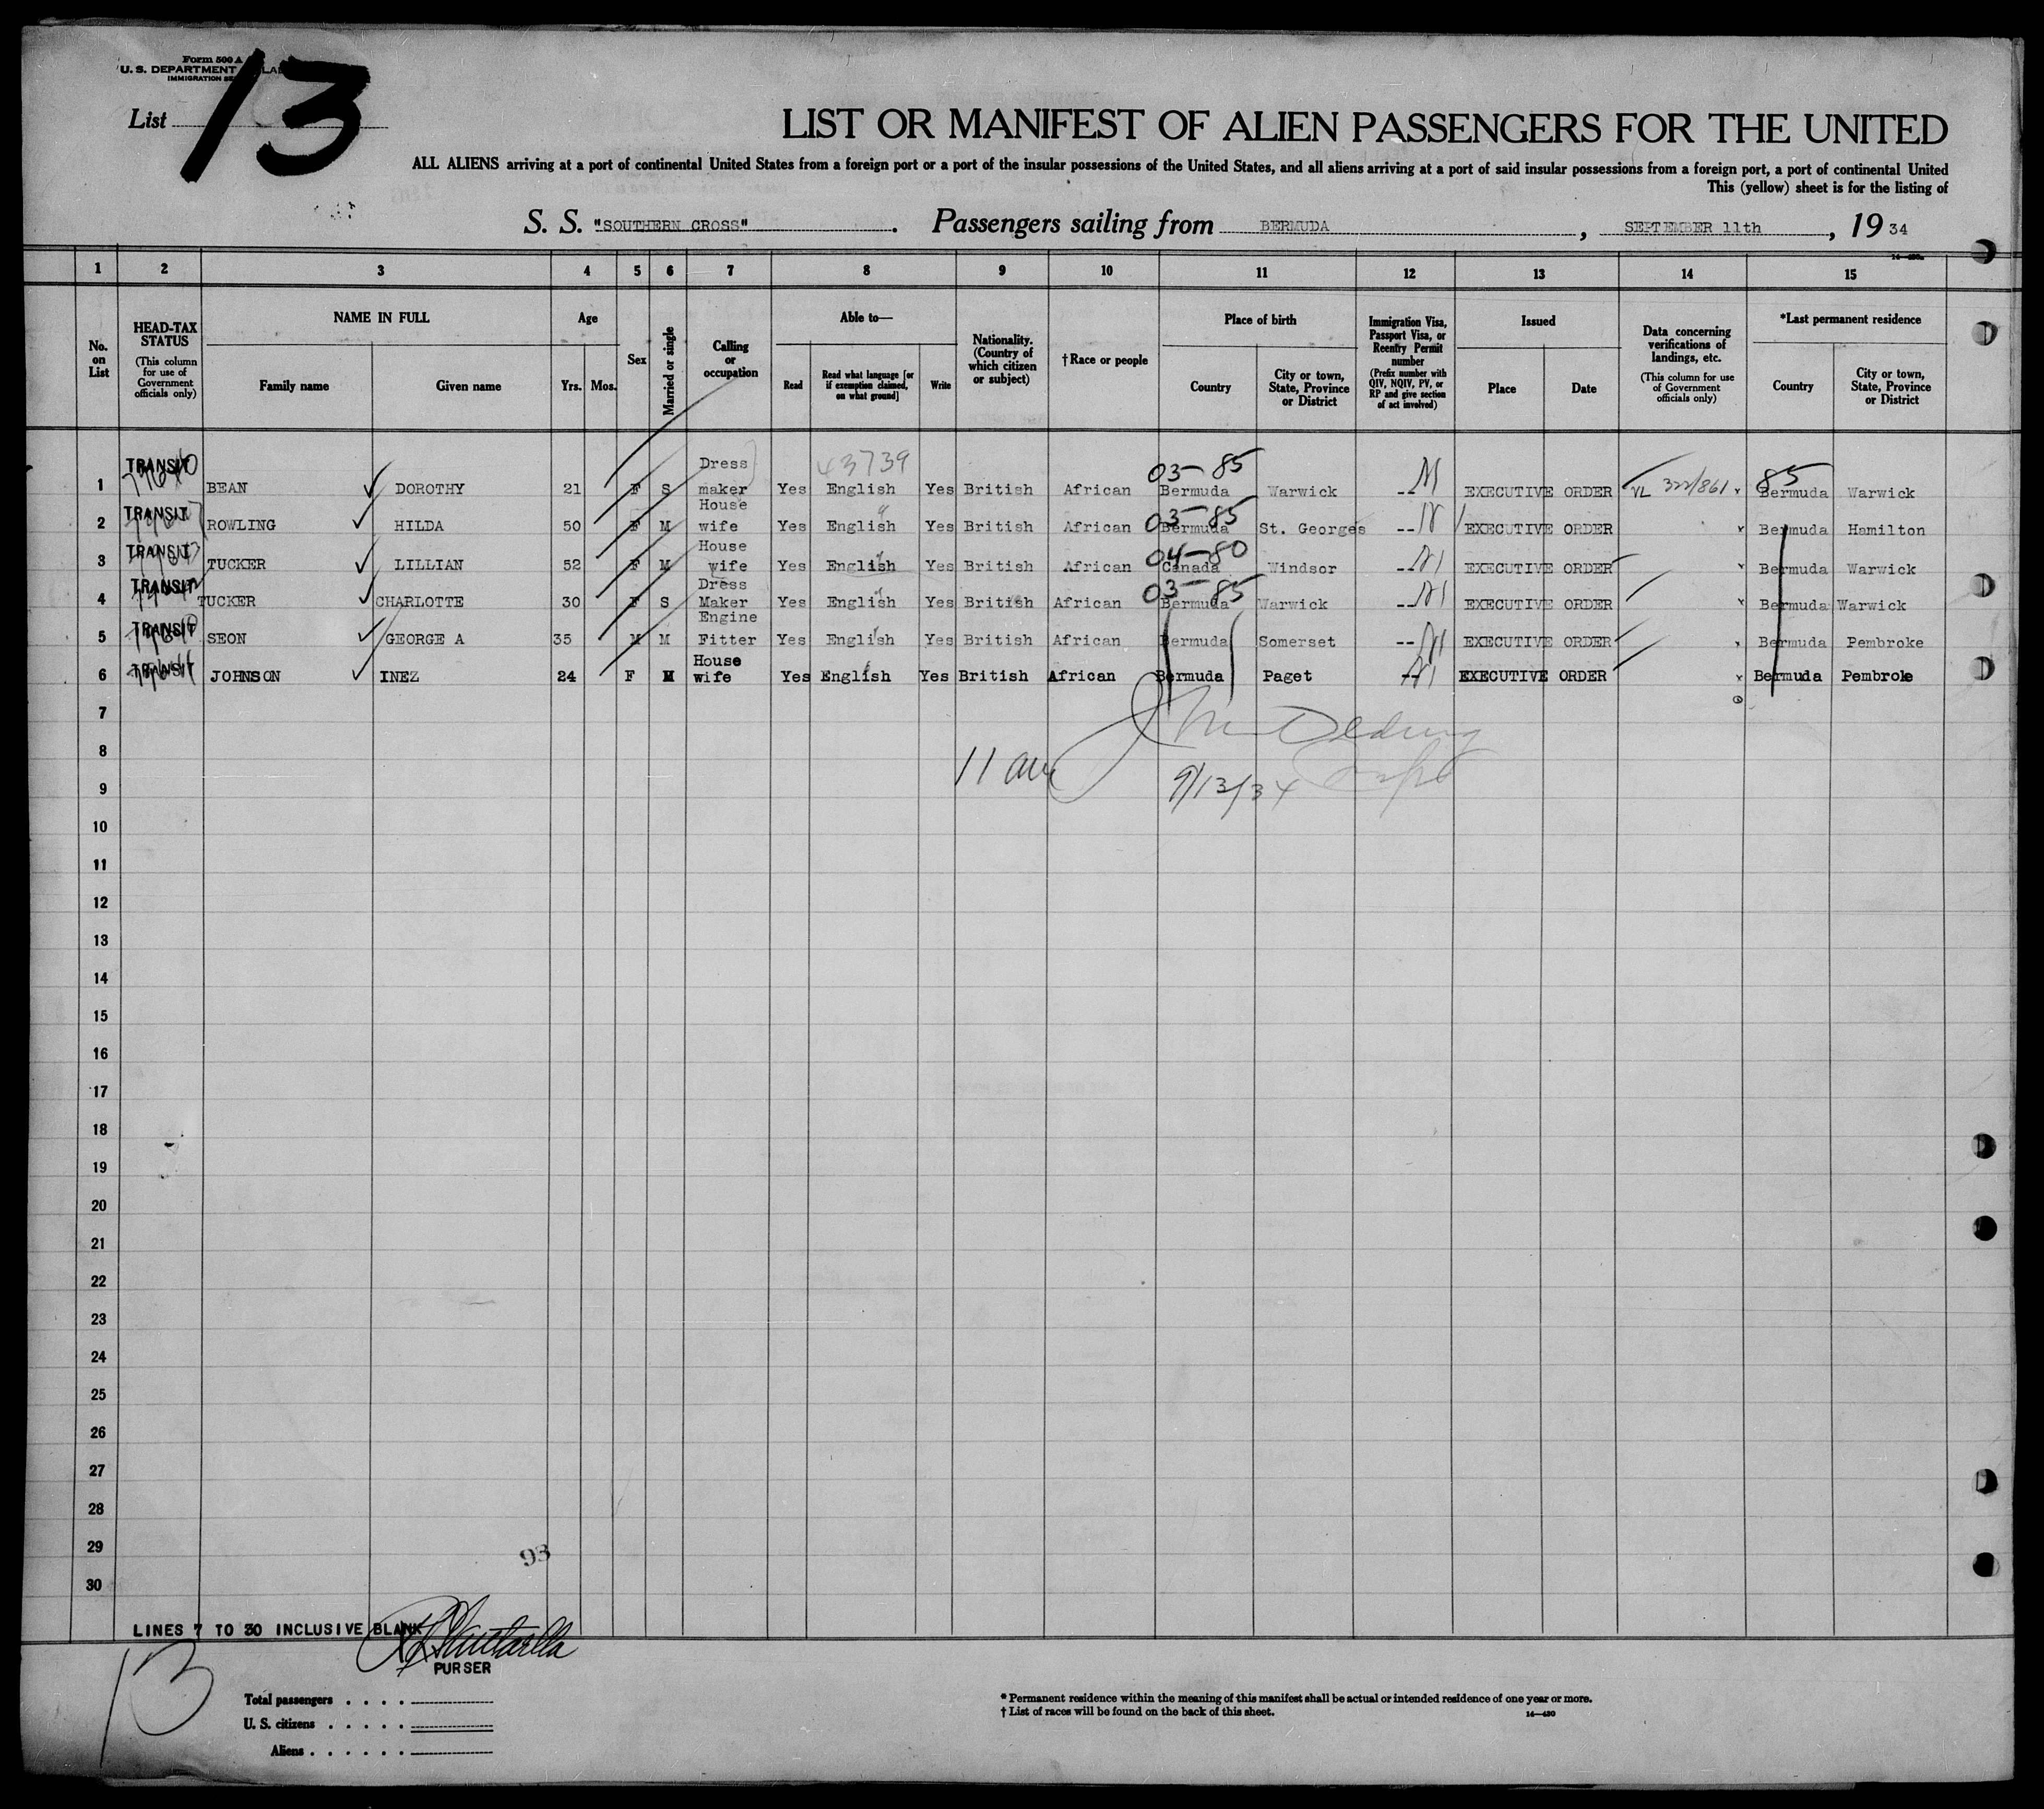 Form 500 A
U. S. DEPARTMENT LA
IMMIGRATION SE
List 13
LIST OR MANIFEST OF ALIEN PASSENGERS FOR THE UNITED
ALL ALIENS arriving at a port of continental United States from a foreign port or a port of the insular possessions of the United States, and all aliens arriving at a port of said insular possessions from a foreign port, a port of continental United
This (yellow) sheet is for the listing of
S. S. "SOUTHERN CROSS". Passengers sailing from BERMUDA, SEPTEMBER 11th, 1934
1 2 3 4 5 6 7 8 9 10 11 12 13 14 15
No. on List
HEAD-TAX STATUS (This column for use of Government officials only)
NAME IN FULL
Family name Given name
Age
Yrs. Mos.
Sex
Married or single
Calling or occupation
Able to—
Read Read what language [or if exemption claimed, on what ground] Write
Nationality. (Country of which citizen or subject)
†Race or people
Place of birth
Country City or town, State, Province or District
Immigration Visa, Passport Visa, or Reentry Permit number (Prefix number with QIV, NQIV, PV, or RP and give section of act involved)
Issued
Place Date
Data concerning verifications of landings, etc. (This column for use of Government officials only)
*Last permanent residence
Country City or town, State, Province or District
43739 03-85 85
1 TRANSIT BEAN DOROTHY 21 F S Dress maker Yes English Yes British African Bermuda Warwick -- EXECUTIVE ORDER VL 322/861 Bermuda Warwick
03-85
2 TRANSIT ROWLING HILDA 50 F M House wife Yes English Yes British African Bermuda St. Georges -- EXECUTIVE ORDER Bermuda Hamilton
04-80
3 TRANSIT TUCKER LILLIAN 52 F M House wife Yes English Yes British African Canada Windsor -- EXECUTIVE ORDER Bermuda Warwick
03-85
4 TRANSIT TUCKER CHARLOTTE 30 F S Dress Maker Yes English Yes British African Bermuda Warwick -- EXECUTIVE ORDER Bermuda Warwick
5 TRANSIT SEON GEORGE A 35 M M Engine Fitter Yes English Yes British African Bermuda Somerset -- EXECUTIVE ORDER Bermuda Pembroke
6 TRANSIT JOHNSON INEZ 24 F M House wife Yes English Yes British African Bermuda Paget -- EXECUTIVE ORDER Bermuda Pembroke
7
8
11 am
9
9/13/34
10
11
12
13
14
15
16
17
18
19
20
21
22
23
24
25
26
27
28
29
93
30
LINES 7 TO 30 INCLUSIVE BLANK
PURSER
13
Total passengers
U. S. citizens
Aliens
* Permanent residence within the meaning of this manifest shall be actual or intended residence of one year or more.
† List of races will be found on the back of this sheet.
14—430